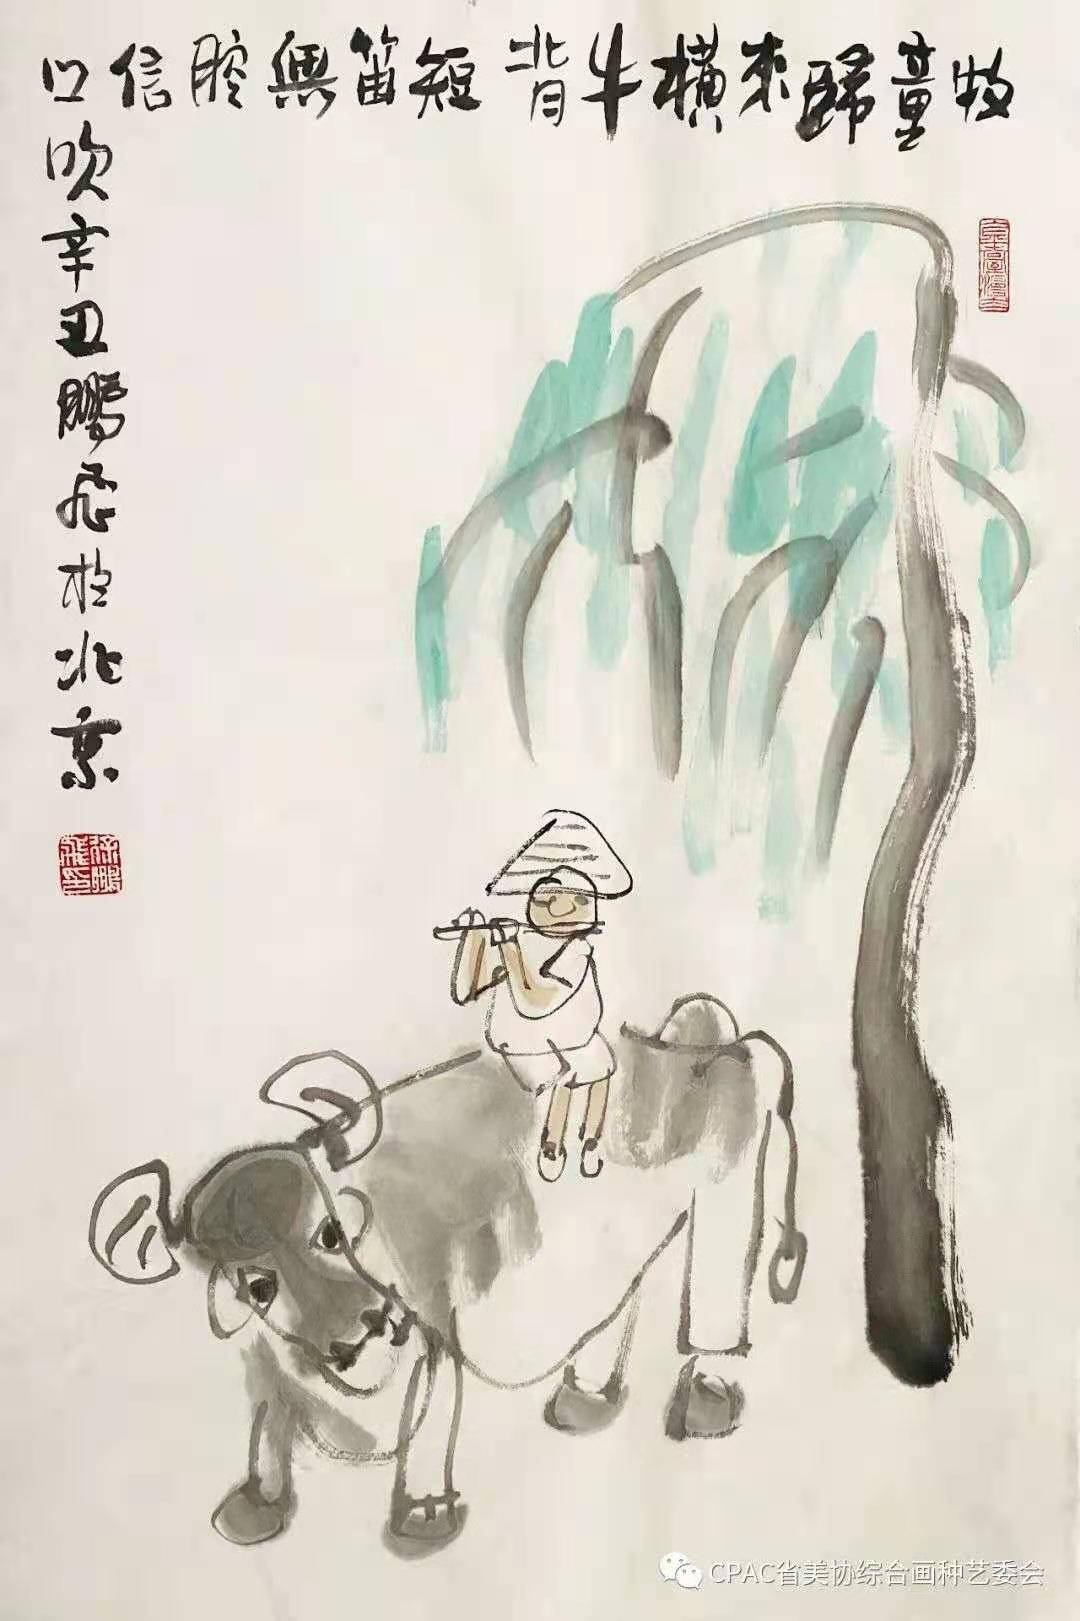 牧童歸来橫牛背短笛無腔信口
吹辛丑鵬飛於北京
徐鵬飛印
CPAC省美协综合画种艺委会